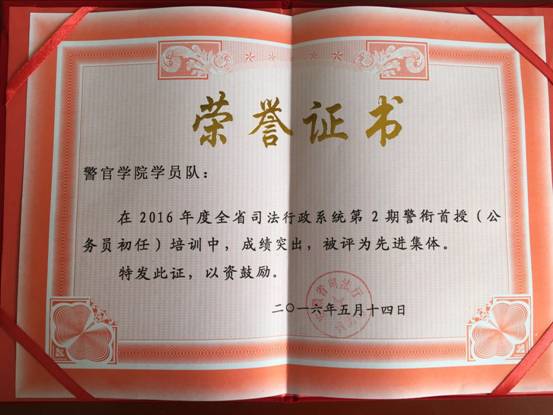 荣誉证书
警官学院学员队：
在2016年度全省司法行政系统第2期警衔首授（公
务员初任）培训中，成绩突出，被评为先进集体。
特发此证，以资鼓励。
二〇一六年五月十四日